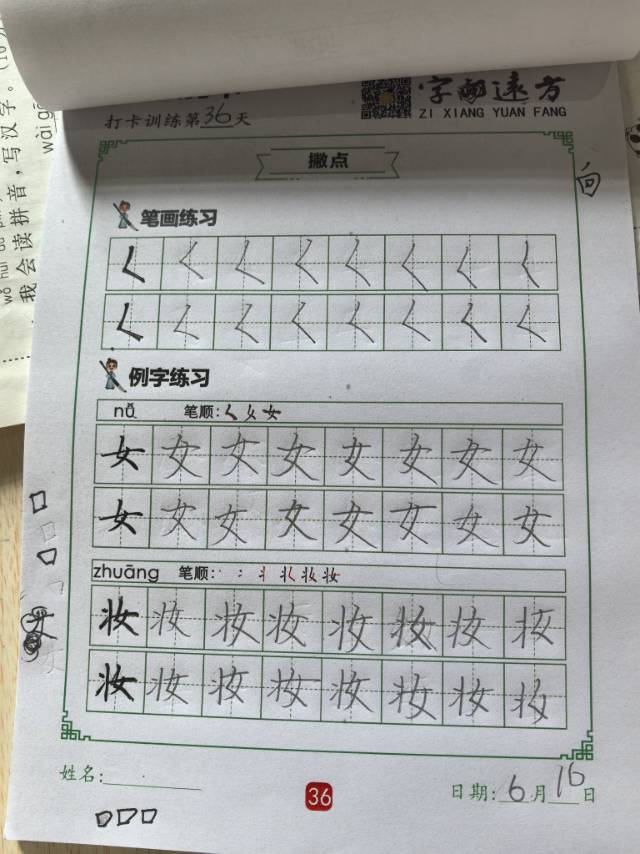 字向远方
ZI XIANG YUAN FANG
打卡训练第36天
撇点
向
笔画练习
𡿨 𡿨 𡿨 𡿨 𡿨 𡿨 𡿨 𡿨
𡿨 𡿨 𡿨 𡿨 𡿨 𡿨 𡿨 𡿨
例字练习
nǚ 笔顺:
女 女 女 女 女 女 女 女
女 女 女 女 女 女 女 女
zhuāng 笔顺:
妆 妆 妆 妆 妆 妆 妆 妆
妆 妆 妆 妆 妆 妆 妆 妆
姓名:
36
日期: 6月16日
我会读拼音,写汉字。(10